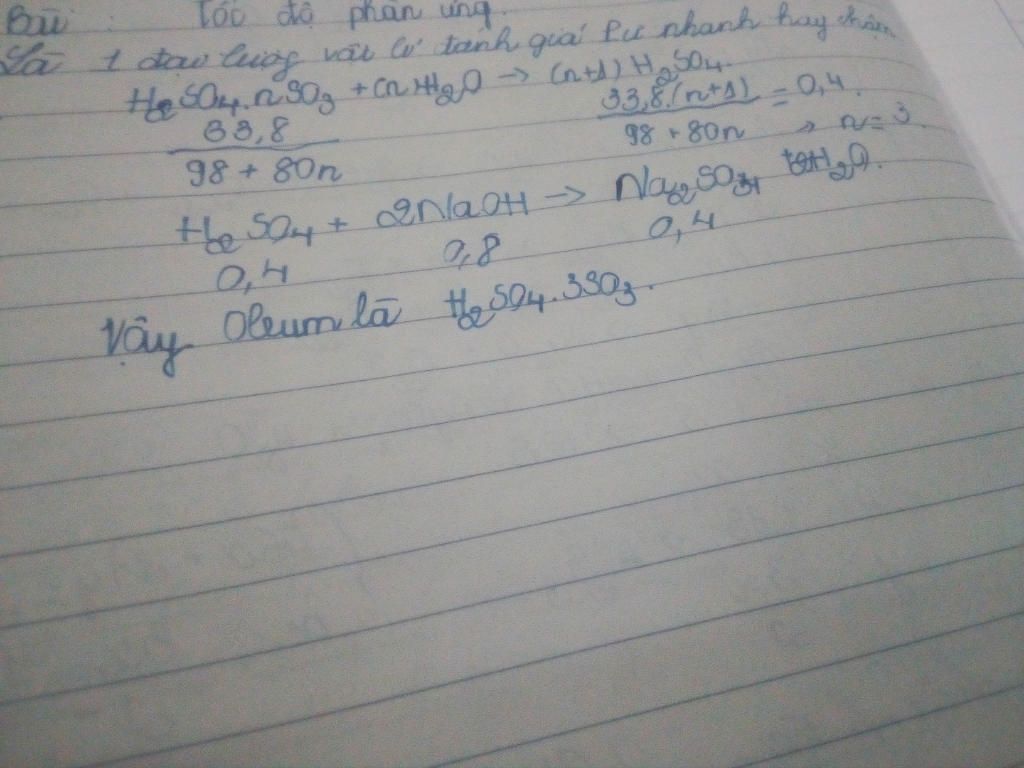 Bài : Tốc độ phản ứng.
Là 1 đại lượng vật lí đánh giá Pư nhanh hay chậm
H2SO4.nSO3 + nH2O → (n+1) H2SO4.
33,8 / 98 + 80n
33,8.(n+1) / 98 + 80n = 0,4. → n = 3
H2SO4 + 2NaOH → Na2SO4 + H2O.
0,4 0,8 0,4
Vậy Oleum là H2SO4.3SO3.